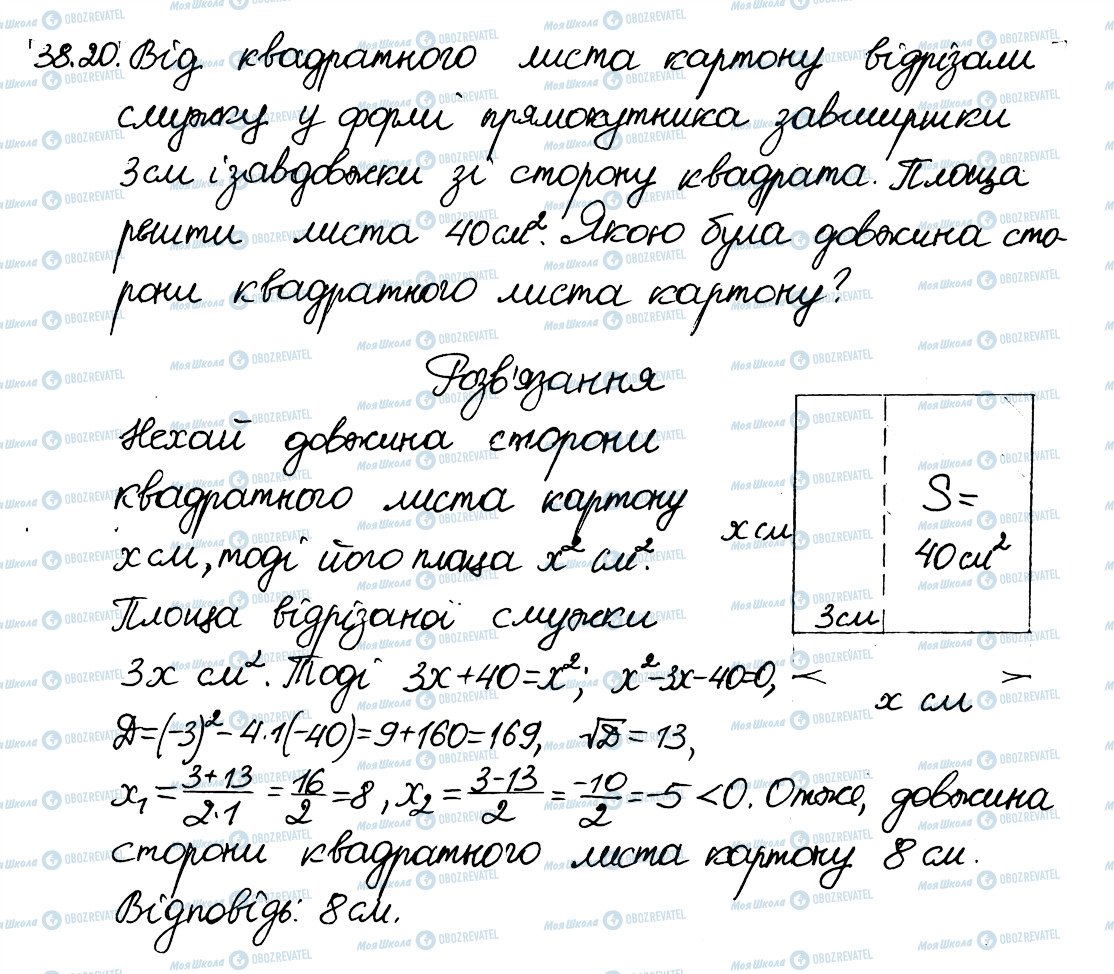 38.20. Від квадратного листа картону відрізали
смужку у формі прямокутника завширшки
3см і завдовжки зі сторону квадрата. Площа
решти листа 40см². Якою була довжина сто-
рони квадратного листа картону?
Розв'язання
Нехай довжина сторони
квадратного листа картону
x см, тоді його площа x² см².
Площа відрізаної смужки
3x см². Тоді 3x+40=x²; x²-3x-40=0,
D=(-3)²-4·1(-40)=9+160=169, √D=13,
x₁=(3+13)/(2·1)=16/2=8, x₂=(3-13)/2=-10/2=-5<0. Отже, довжина
сторони квадратного листа картону 8 см.
Відповідь: 8см.
x см
S=
40см²
3см
x см
МояШкола OBOZREVATEL